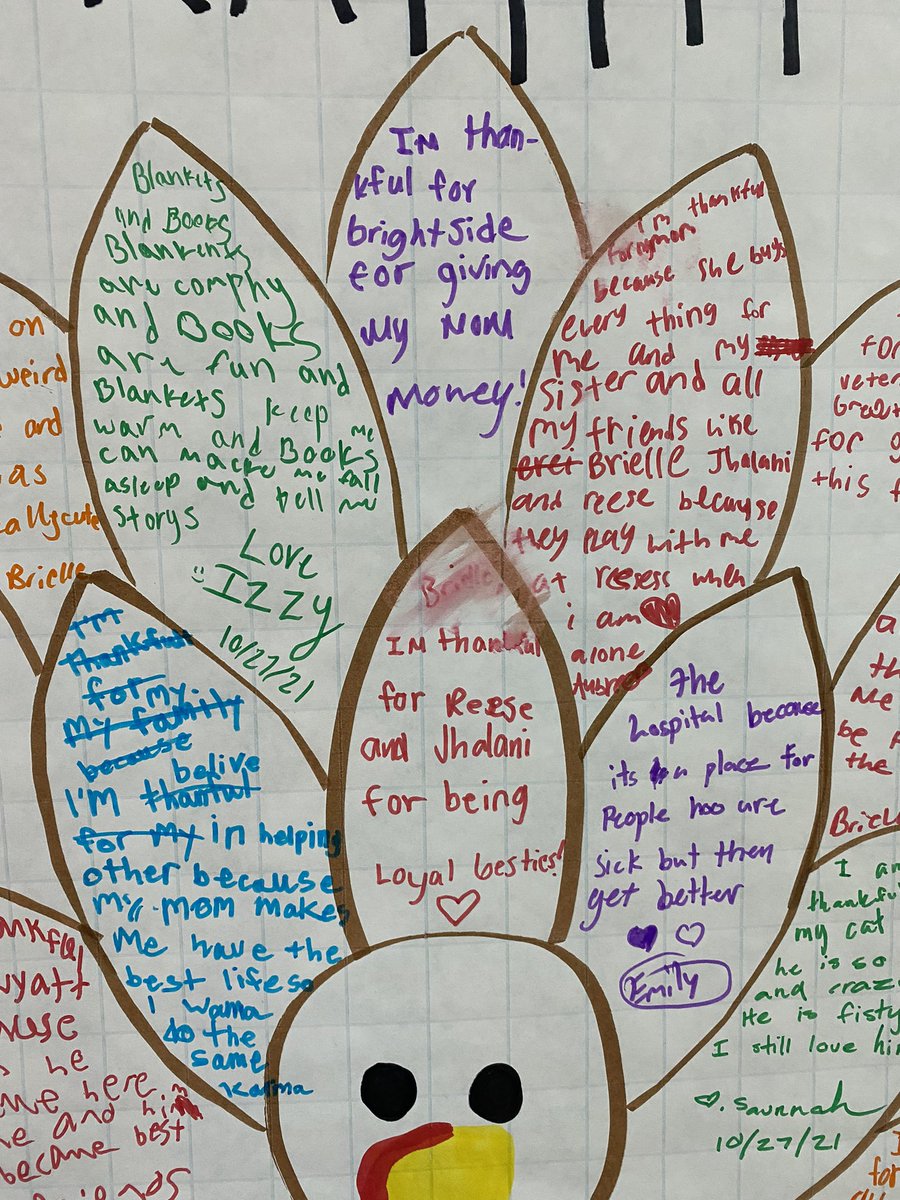 IM than-
kful for
brightside
for giving
My Mom
Money!
Blankits
and Books
Blankents
are comphy
and Books
are fun and
Blankets keep me
warm and Books
can macke me fall
asleep and tell me
storys
Love
IZZY
10/27/21
I'm thankful
for my mom
because she buys
every thing for
me and my
sister and all
my friends like
Brielle Jhalani
and reese because
they play with me
at reesess when
i am
alone
Aubree
on
weird
and
as
cute
Brielle
for
veter
for g
this f
I'm
thankful
for my
my family
because
belive
I'm thankful
for my in helping
other because
my mom makes
Me have the
best life so
I wanna
do the
same
Karma
Brielle
IM thankful
for Reese
and Jhalani
for being
Loyal besties!
The
hospital because
its a place for
People hoo are
sick but then
get better
Emily
the
Me
be
the
Brielle
I am
thankful
my cat
he is so
and craz
He is fisty
I still love him
Savnnah
10/27/21
nkful
wyatt
he
here
and him
became best
friends
for